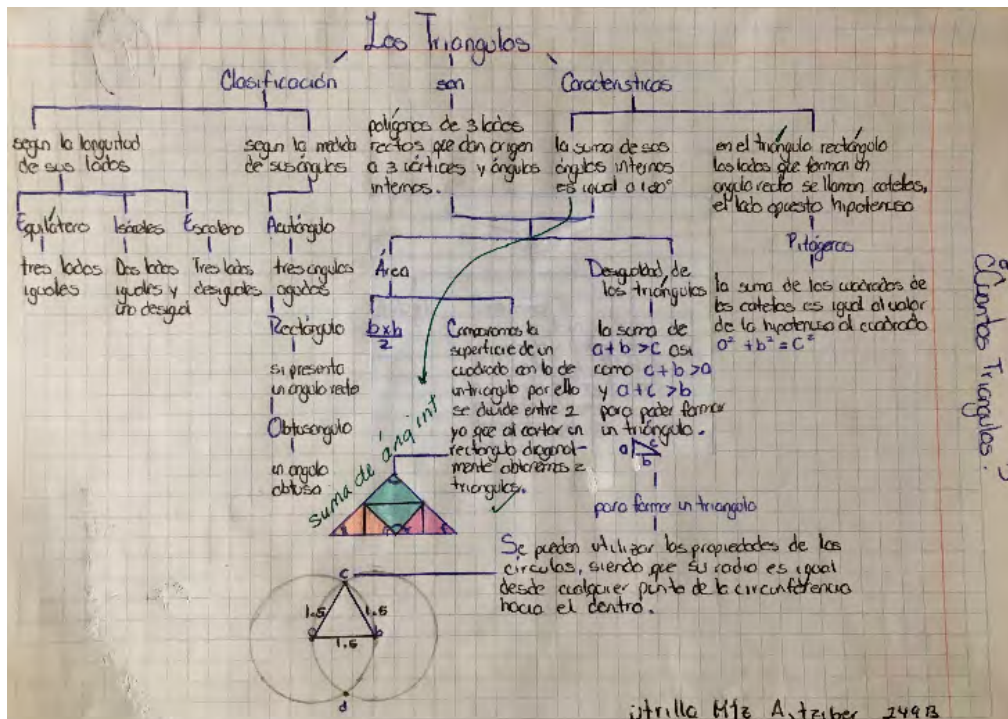 Los Triangulos
Clasificación
son
Caracteristicas
según la longuitud
de sus lados
según la medida
de sus ángulos
polígonos de 3 lados
rectos que dan origen
a 3 vértices y ángulos
internos.
la suma de sus
ángulos internos
es igual a 180°
en el triángulo rectángulo
los lados que forman un
angulo recto se llaman catetos,
el lado opuesto hipotenusa
Equilátero
tres lados
iguales
Isósceles
Dos lados
iguales y
uno desigual
Escaleno
Tres lados
desiguales
Acutángulo
tres angulos
agudos
Rectángulo
si presenta
un angulo recto
Obtusangulo
un angulo
obtuso
Área
b x h
2
Comparamos la
superficie de un
cuadrado con la de
un triangulo por ello
se divide entre 2
ya que al cortar un
rectángulo diagonal-
mente obtenemos 2
triangulos.
Desigualdad de
los triángulos
la suma de
a+b >c asi
como c+b >a
y a+c >b
para poder formar
un triángulo.
a c
b
para formar un triangulo
Se pueden utilizar las propiedades de los
círculos, siendo que su radio es igual
desde cualquier punto de la circunferencia
hacia el centro.
Pitágoras
la suma de los cuadrados de
los catetos es igual al valor
de la hipotenusa al cuadrado
a² + b² = c²
suma de áng int
c
1.5 1.5
a b
1.5
d
Triangulos.
Utrilla Mtz Aitziber 249B